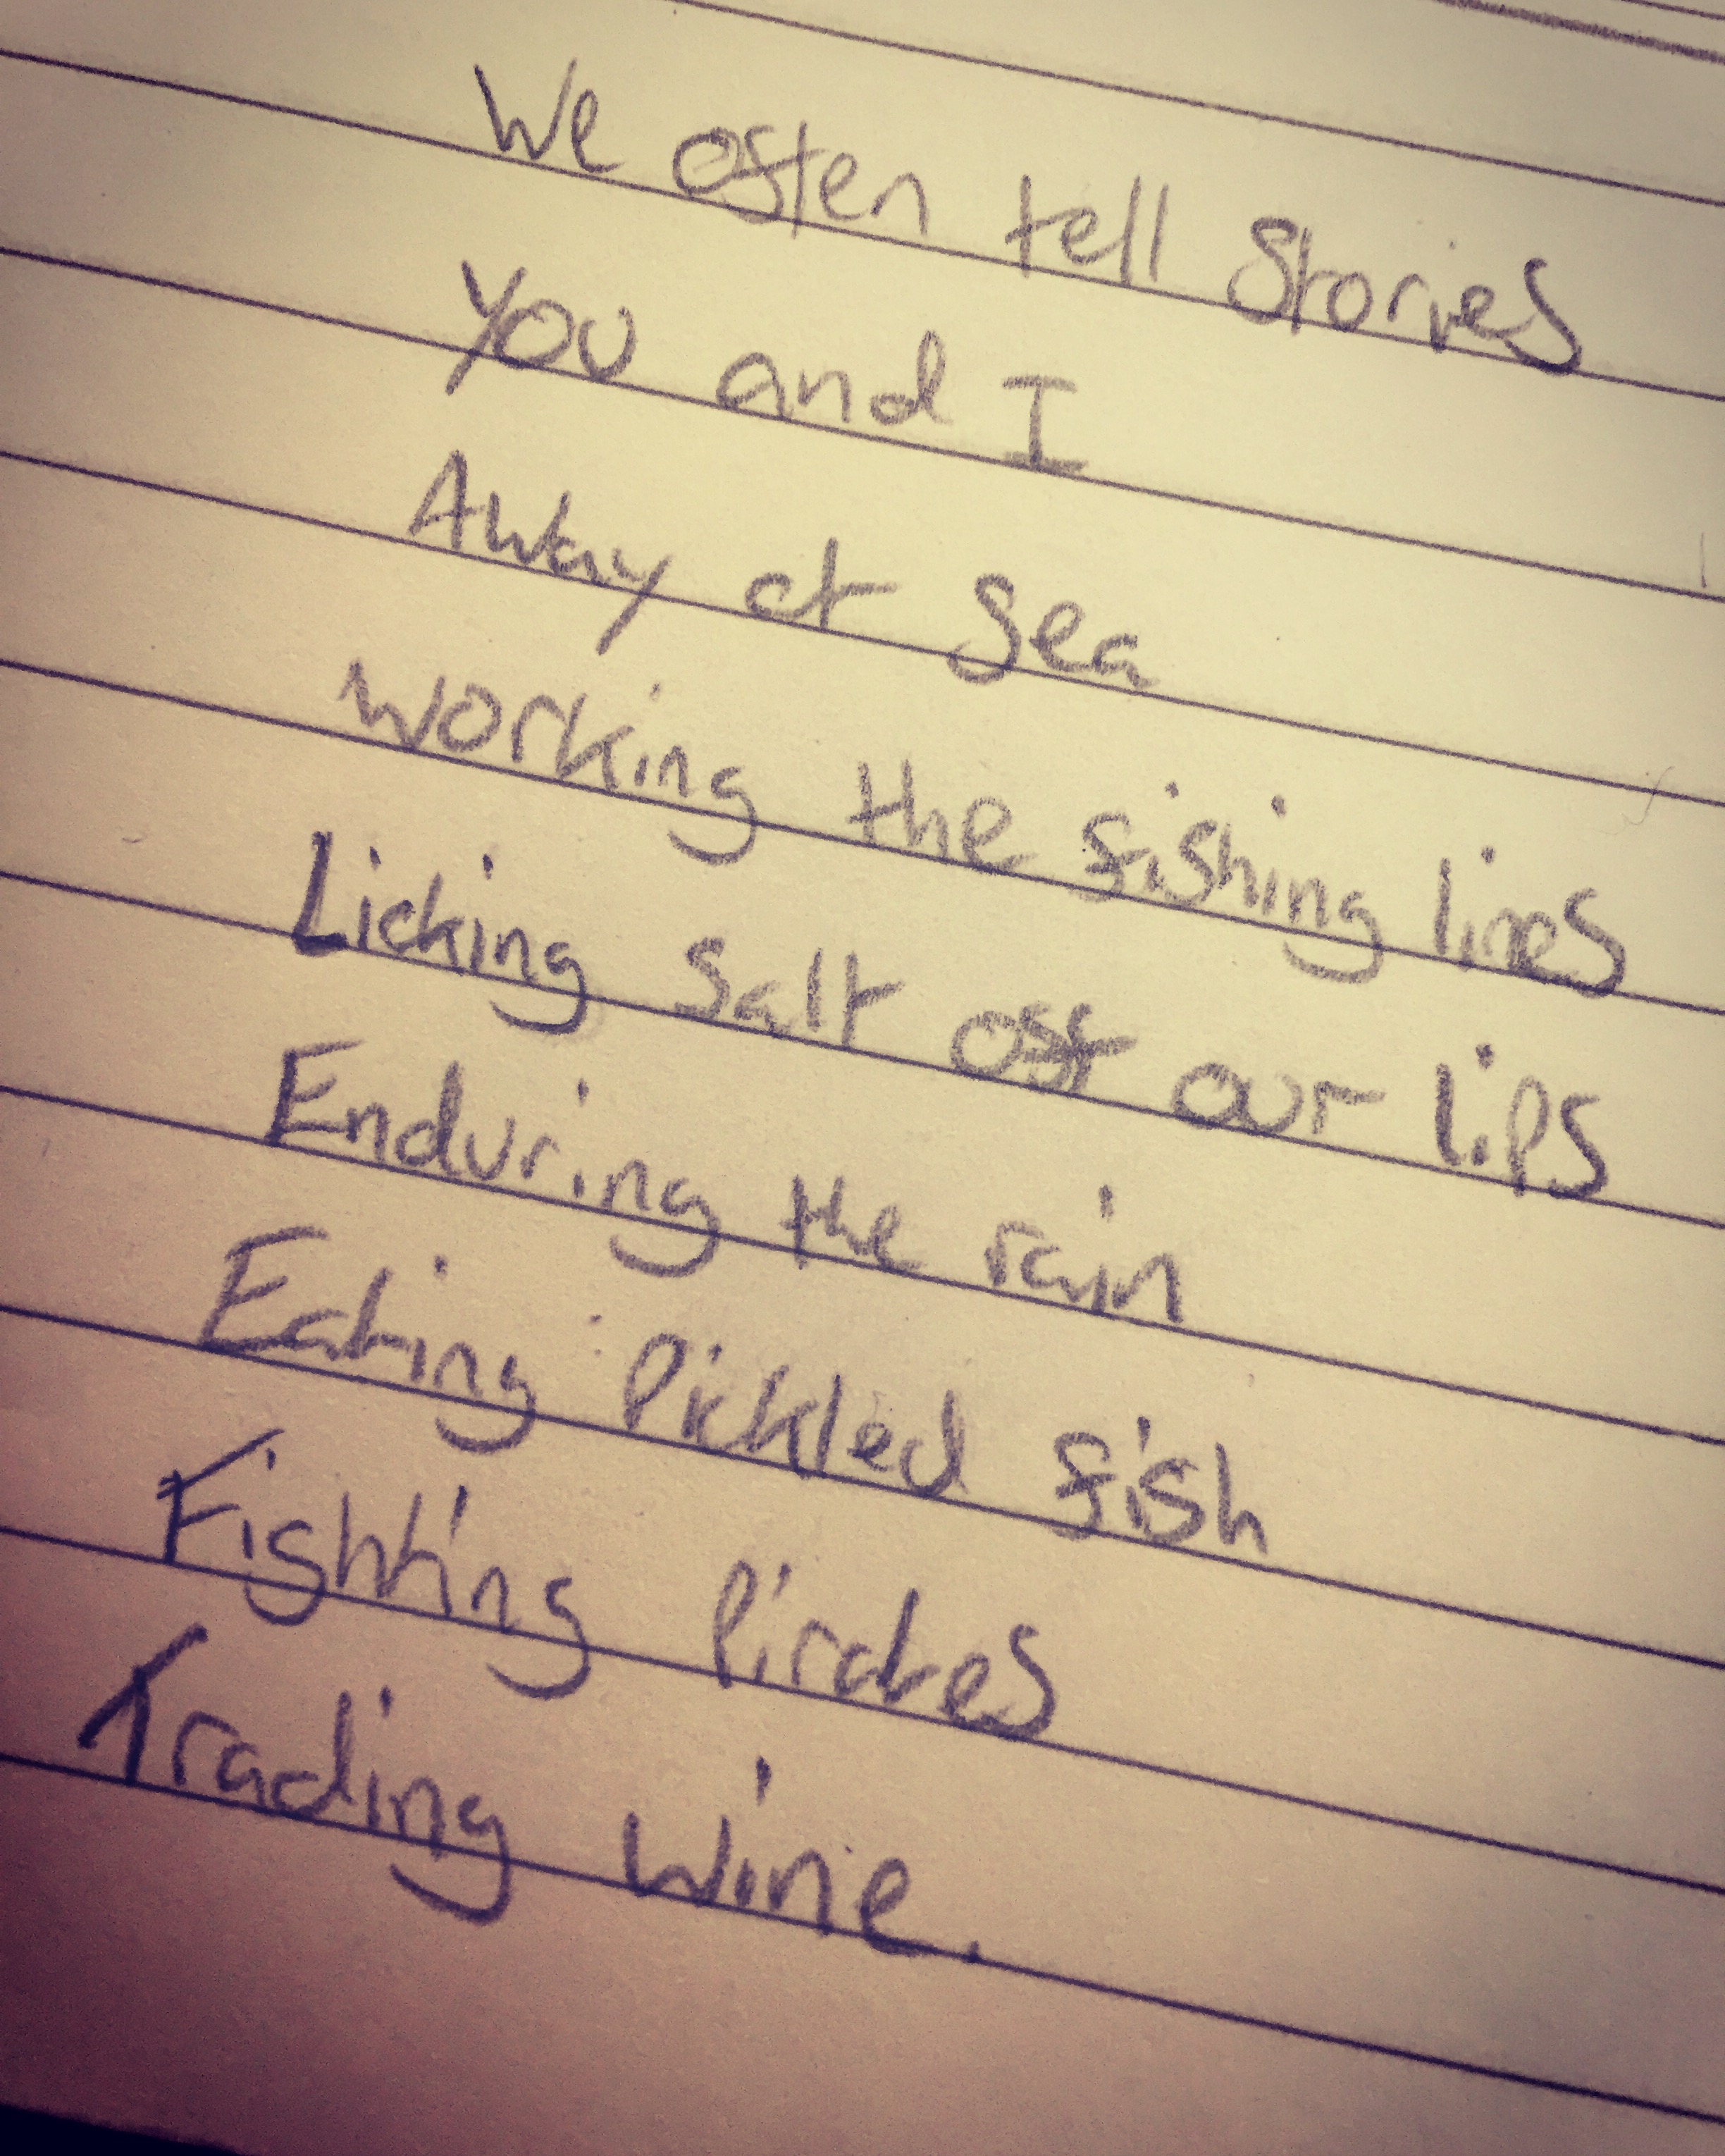 We often tell Stories
You and I
Away at Sea
Working the fishing lines
Licking Salt off our lips
Enduring the rain
Eating Pickled fish
Fighting Pirates
Trading Wine.